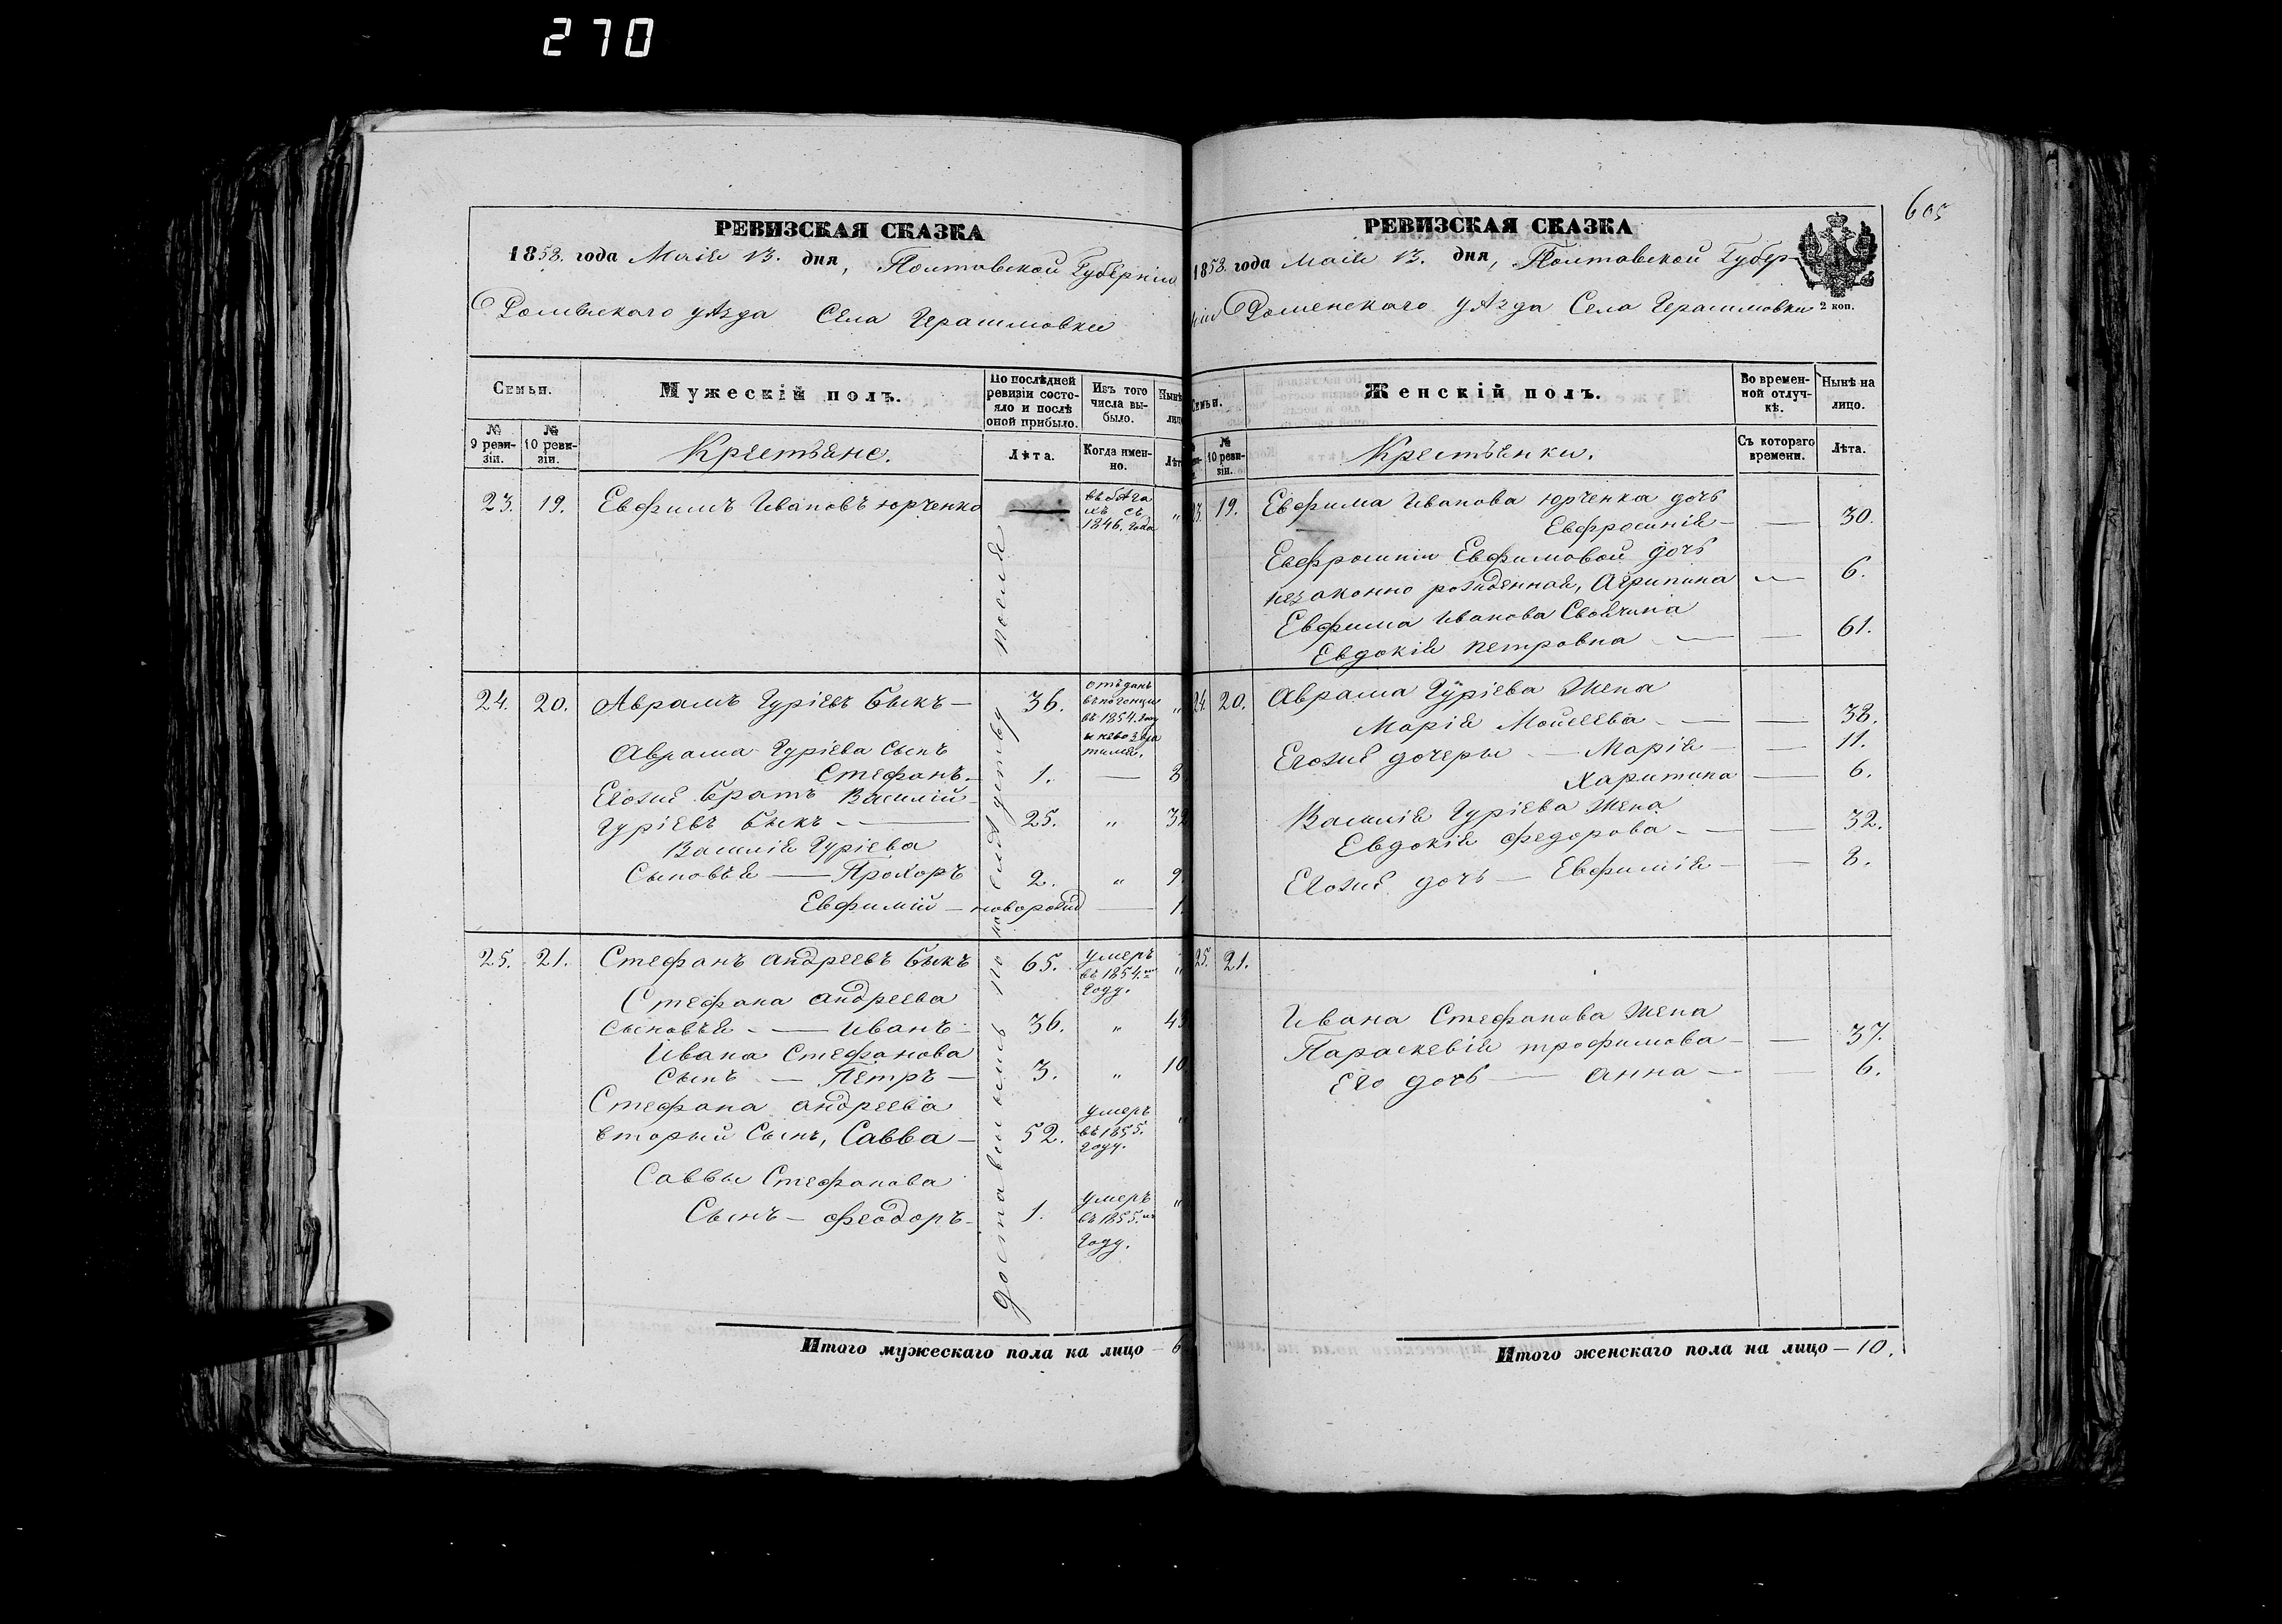 270
РЕВИЗСКАЯ СКАЗКА
1858. года Маія 13. дня, Полтавской Губерніи
Роменскаго уѣзда Села Герасимовки
Семьи.
Мужескій полъ.
По послѣдней ревизіи состояло и послѣ оной прибыло.
Изъ того числа выбыло.
Нынѣ
лицо
№ 9 ревизіи.
№ 10 ревизіи.
Крестьяне.
Лѣта.
Когда именно.
Лѣт
23. 19. Евфимъ Ивановъ Юрченко — въ бѣгахъ съ 1846. года „
24. 20. Аврамъ Гуріевъ Быкъ — 36. отъданъ въ погонцы въ 1854. году и невозвратился. „
Аврама Гуріева Сынъ
Стефанъ — 1. — 8
Егоже братъ Василій
Гуріевъ Быкъ — 25. „ 32
Василія Гуріева
Сыновья — Прохоръ 2. „ 9.
Евфимій — новорожд — 1.
25. 21. Стефанъ Андреевъ Быкъ 65. умеръ въ 1854.мъ году. „
Стефана Андреева
сыновья — Иванъ — 36. „ 43
Ивана Стефанова
Сынъ — Петръ — 3. „ 10
Стефана Андреева
вторый Сынъ, Савва — 52. умеръ въ 1855. году. „
Саввы Стефанова
Сынъ — Феодоръ — 1. умеръ въ 1855.мъ году. „
Итого мужескаго пола на лицо — 6
605
РЕВИЗСКАЯ СКАЗКА
1858 года Маія 13. дня, Полтавской Губер-
ніи Роменскаго уѣзда Села Герасимовки
2 коп.
Семьи.
Женскій полъ.
Во временной отлучкѣ.
Нынѣ на лицо.
№ 10 ревизіи.
Крестьянки.
Съ котораго времени.
Лѣта.
23. 19. Евфима Иванова Юрченка дочь
Евфросинія — — 30.
Евфросиніи Евфимовой дочь
незаконно рожденная, Агрипина — 6.
Евфима Иванова Своячина
Евдокія Петровна — — 61.
24. 20. Аврама Гуріева Жена
Марія Мойсеева — — 38.
Егоже дочеры — Марія — — 11.
Харитина — 6.
Василія Гуріева Жена
Евдокія Федорова — — 32.
Егоже дочь — Евфимія — — 8.
25. 21.
Ивана Стефанова Жена
Параскевія Трофимова — — 37.
Его дочь — Анна — — 6.
Итого женскаго пола на лицо — 10.